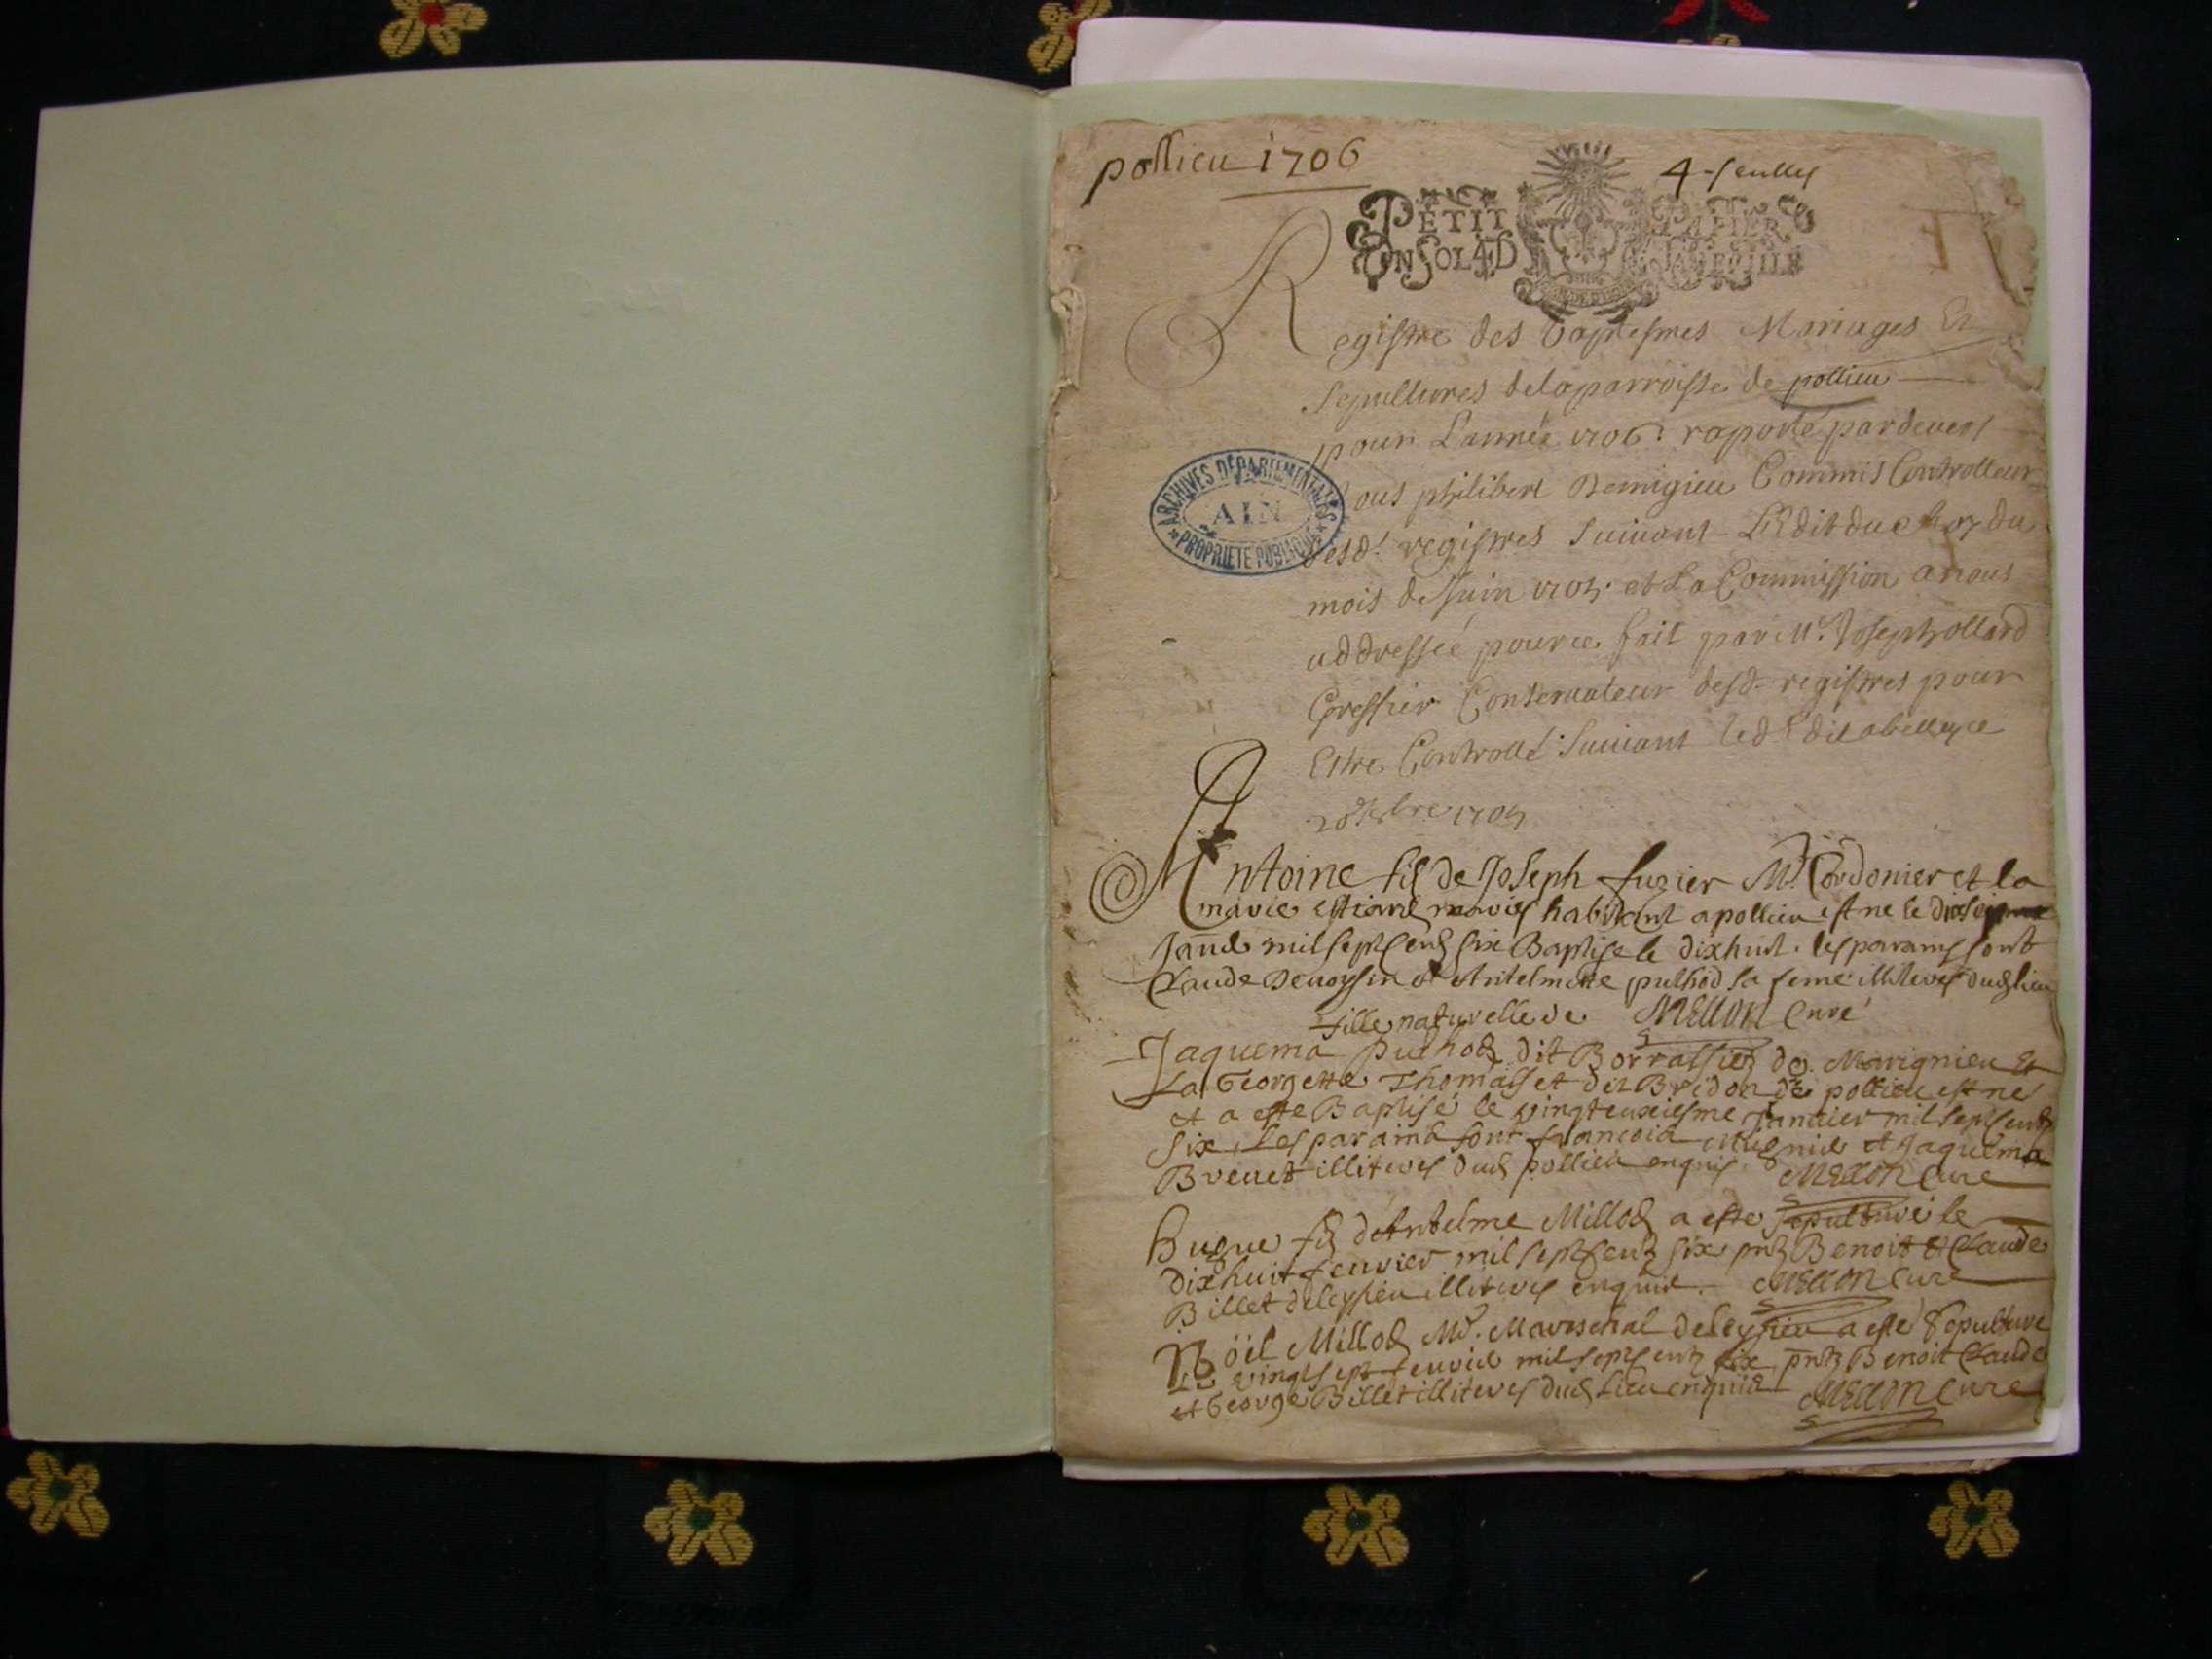 pollieu 1706
4 feulles
PETIT PAPIER
UN SOL 4 D LA FEUILLE
Registre des baptesmes Mariages Et
Sepultures de la parroisse de pollieu
pour L'année 1706 raporté pardevers
Nous philibert Commis Controlleur
desd. registres Suivant L'Edit du Roy du
mois de Juin 1705 et La Commission a nous
addressée pour ce fait par Mr. Joseph ollard
Greffier Conservateur desd. registres pour
Estre Controllé Suivant led Edit a belley ce
1705
ARCHIVES DÉPARTEMENTALES
AIN
PROPRIÉTÉ PUBLIQUE
Antoine fils de Joseph fuzier Mr. Cordonier et la
marie mariés habitant a pollieu est ne le
Janv mil sept cents six Baptise le dixhuit. les parains sont
Claude Devoysin et Antelmette pulhod sa feme illiteres dud lieu
fille naturelle de MEllON Curé
Jaquema pulhod dit de Marignieu Et
La Georgette Thomasset dit Bridon de pollieu est ne
et a este Baptisé le Janvier mil sept cents
Six, Les parains sont francois et Jaquema
Brevet illiteres dud pollieu enquis MEllON Curé
Hugue fils d'Antelme Millod a este sepulturé le
dixhuit fevrier mil sept cents six pnts Benoit et Claude
Billet de leyssieu illiteres enquis. MEllON Curé
Nöel Millod Md. Mareschal de leyssieu a este sepulturé
Le vingt sept fevrier mil sept cents six, pnts Benoit Claude
et George Billet illiteres dud Lieu enquis MEllON Curé